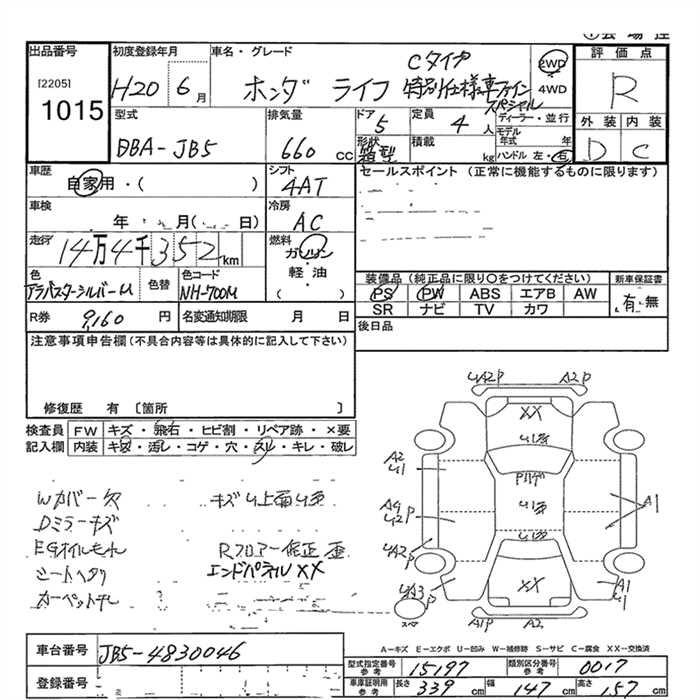 出品番号
[2205]
1015
初度登録年月
H20 6月
車名・グレード
ホンダ ライフ Cタイプ
特別仕様車ファイン
スペシャル
2WD
4WD
評価点
R
外装 内装
D C
型式
DBA-JB5
排気量
660 cc
ドア
5
定員
4 人
形状
箱型
積載
kg
ディーラー・並行
モデル年式 年
ハンドル 左・右
車歴
自家用・( )
シフト
4AT
セールスポイント (正常に機能するものに限ります)
車検
年 月( 日)
冷房
AC
走行
14万4千352km
燃料
ガソリン
・
軽・油
( )
色
アラバスターシルバーM
色替
色コード
NH-700M
装備品 (純正品に限り○をつけてください)
PS PW ABS エアB AW
SR ナビ TV カワ
新車保証書
有・無
R券 9,160 円
名変通知期限 月 日
後日品
注意事項申告欄(不具合内容等は具体的に記入して下さい)
修復歴 有 〔箇所 〕
検査員記入欄
FW キズ・飛石・ヒビ割・リペア跡・×要
内装 キズ・汚し・コゲ・穴・スレ・キレ・破レ
Wカバー欠
Dミラーキズ
EGオイルもれ
シートヘタリ
Rフロアー修正歪
エンドパネルXX
U A2 P
A2 P
XX
A2
U1
A4
U2 P
U A2 P
U A3 P
スペア
A1
XX
A1
U1
A1 P
A2
A-キズ E-エクボ U-凹み W-補修跡 S-サビ C-腐食 XX-交換済
車台番号 JB5-4830046
登録番号
型式指定番号 参考 15197
類別区分番号 参考 0017
車庫証明用 参考 長さ 339 cm 幅 147 cm 高さ 157 cm